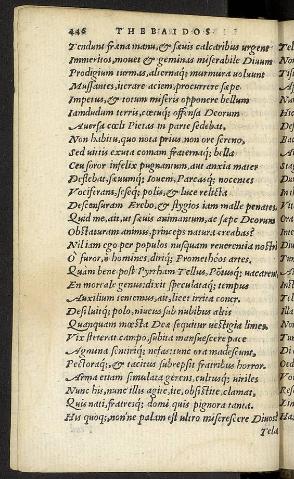 446 THEBAIDOS
Tendunt fræna manu, & sæuis calcaribus urgent
Immeritos, mouet & geminas miserabile Diuum
Prodigium turmas, alternaq; murmura uoluunt
Mussantes, iterare aciem, procurrere sæpe
Impetus, & totum miseris opponere bellum
Iamdudum terris, cœtuq; offensa Deorum
Auersa cœli Pietas in parte sedebat,
Non habitu, quo nota prius non ore sereno,
Sed uittis exuta comam fraternaq; bella
Ceu soror infelix pugnantum, aut anxia mater
Deflebat, sæuumq; Iouem, Parcasq; nocentes
Vociferans, seseq; polis, & luce relicta
Descensuram Erebo, & stygios iam malle penates.
Quid me, ait, ut sæuis animantum, ac sæpe Deorum
Obstaturam animis, princeps natura creabas?
Nil iam ego per populos nusquam reuerentia nostri
O furor, ô homines, diriq; Promethêos artes.
Quàm bene post Pyrrham Tellus, Pótusq; uacarent,
En mortale genus: dixit speculataq; tempus
Auxilium tentemus, ait, licet irrita coner.
Desiluitq; polo, niueus sub nubibus atris
Quanquam mœsta Dea sequitur uestigia limes,
Vix steterat campo, subita mansuescere pace
Agmina sentiriq; nefas: tunc ora madescunt,
Pectoraq;, & tacitus subrepsit fratribus horror.
Arma etiam simulata gerens, cultusq; uiriles
Nunc his, nunc illis agite, ite, obsistite, clamat,
Quis nati, fratresq; domi quis pignora tanta.
His quoq;, nonne palam est ultro miserescere Diuos?
Tela